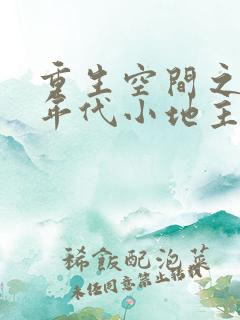 重生空間之
年代小地主
稀飯配泡菜
未经同意禁止转载